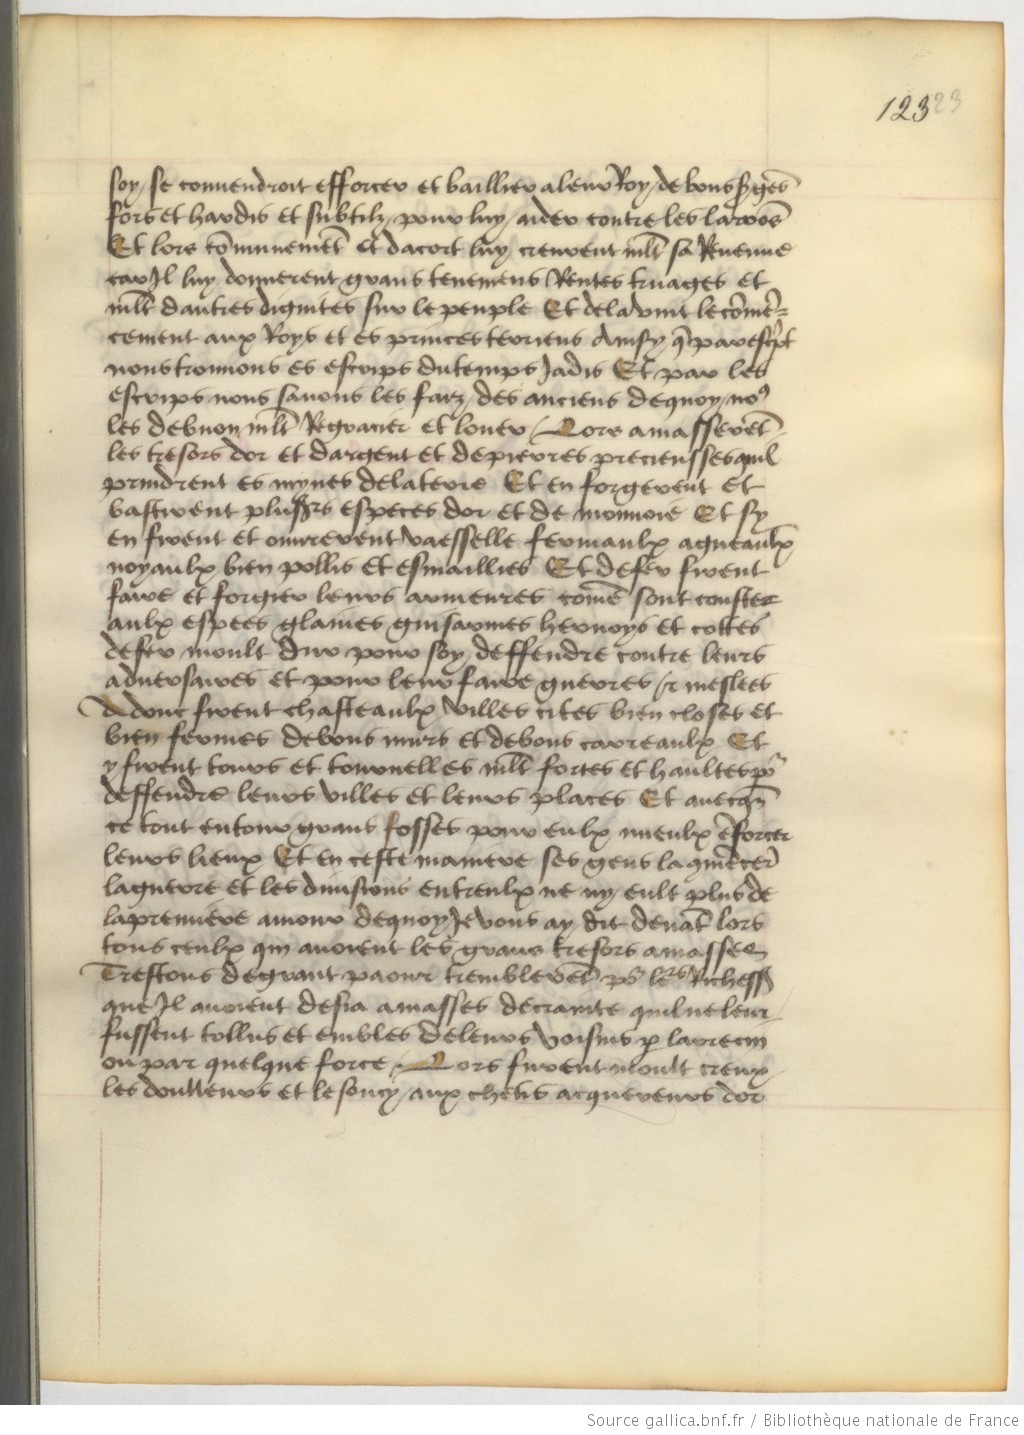 12323
soy / se conuendroit efforcer et baillier a leur Roy / de bons sergẽs
fors et hardis et subtilz / pour luy / aider contre les larrõs
Et lors cõmunemẽt et dacort luy creurent mlt̃ sa Reuenue
car Il luy donnerent grans tenemens Rentes truages et
mlt̃ dautres dignites sur le peuple Et de la vint le cõmẽ=
cement aux Roys et es princes terriens Ainsy q̃ par escript
nous trouuons es escrips du temps Jadis Et par les
escrips nous sauons les faiz / des anciens de quoy / no9
les debuon mlt̃ Regracier et louer / Lors amasserẽt
les tresors dor et dargent et de pierres preciensses quil
prindrent es mynes de la terre Et en forgerent et
bastirent plussrs especes dor et de monnoie Et sy
en firent et ouurerent vaesselle fermaulx agneaulx
noyaulx bien pollis et esmaillies Et de fer firent
faire et forgier leurs armeures cõme sont coustez
aulx espees glaiues guisarmes hernoys et cottes
de fer moult dur pour soy deffendre contre leurs
aduersaires et pour leur faire guerres et meslees
Adonc firent chasteaulx villes cites bien closes et
bien fermes de bons murs et de bons carreaulx Et
y firent tours et tournelles mlt̃ fortes et haultes po2
deffendre leurs villes et leurs places Et auecq̃s
ce tout entour grans fosses pour eulx mieulx ẽforcer
leurs lieux Et en ceste maniere ses gens la cõmẽcerẽt
la guerre et les diuisions entreulx ne ny eult plus de
la premiere amour de quoy Je vous ay dit deuãt lors
tous ceulx qui auoient les grans tresors amassez
Trestous de grant paour tremblerẽt po2 les Richesses
que Il auoient desia amasses de crainte quil ne leur
fussent tollus et embles de leurs voisins p larrecin
ou par quelque force / Lors furent moult creux
les doulleurs et le soucy / aux chetis acquereurs dor
Source gallica.bnf.fr / Bibliothèque nationale de France